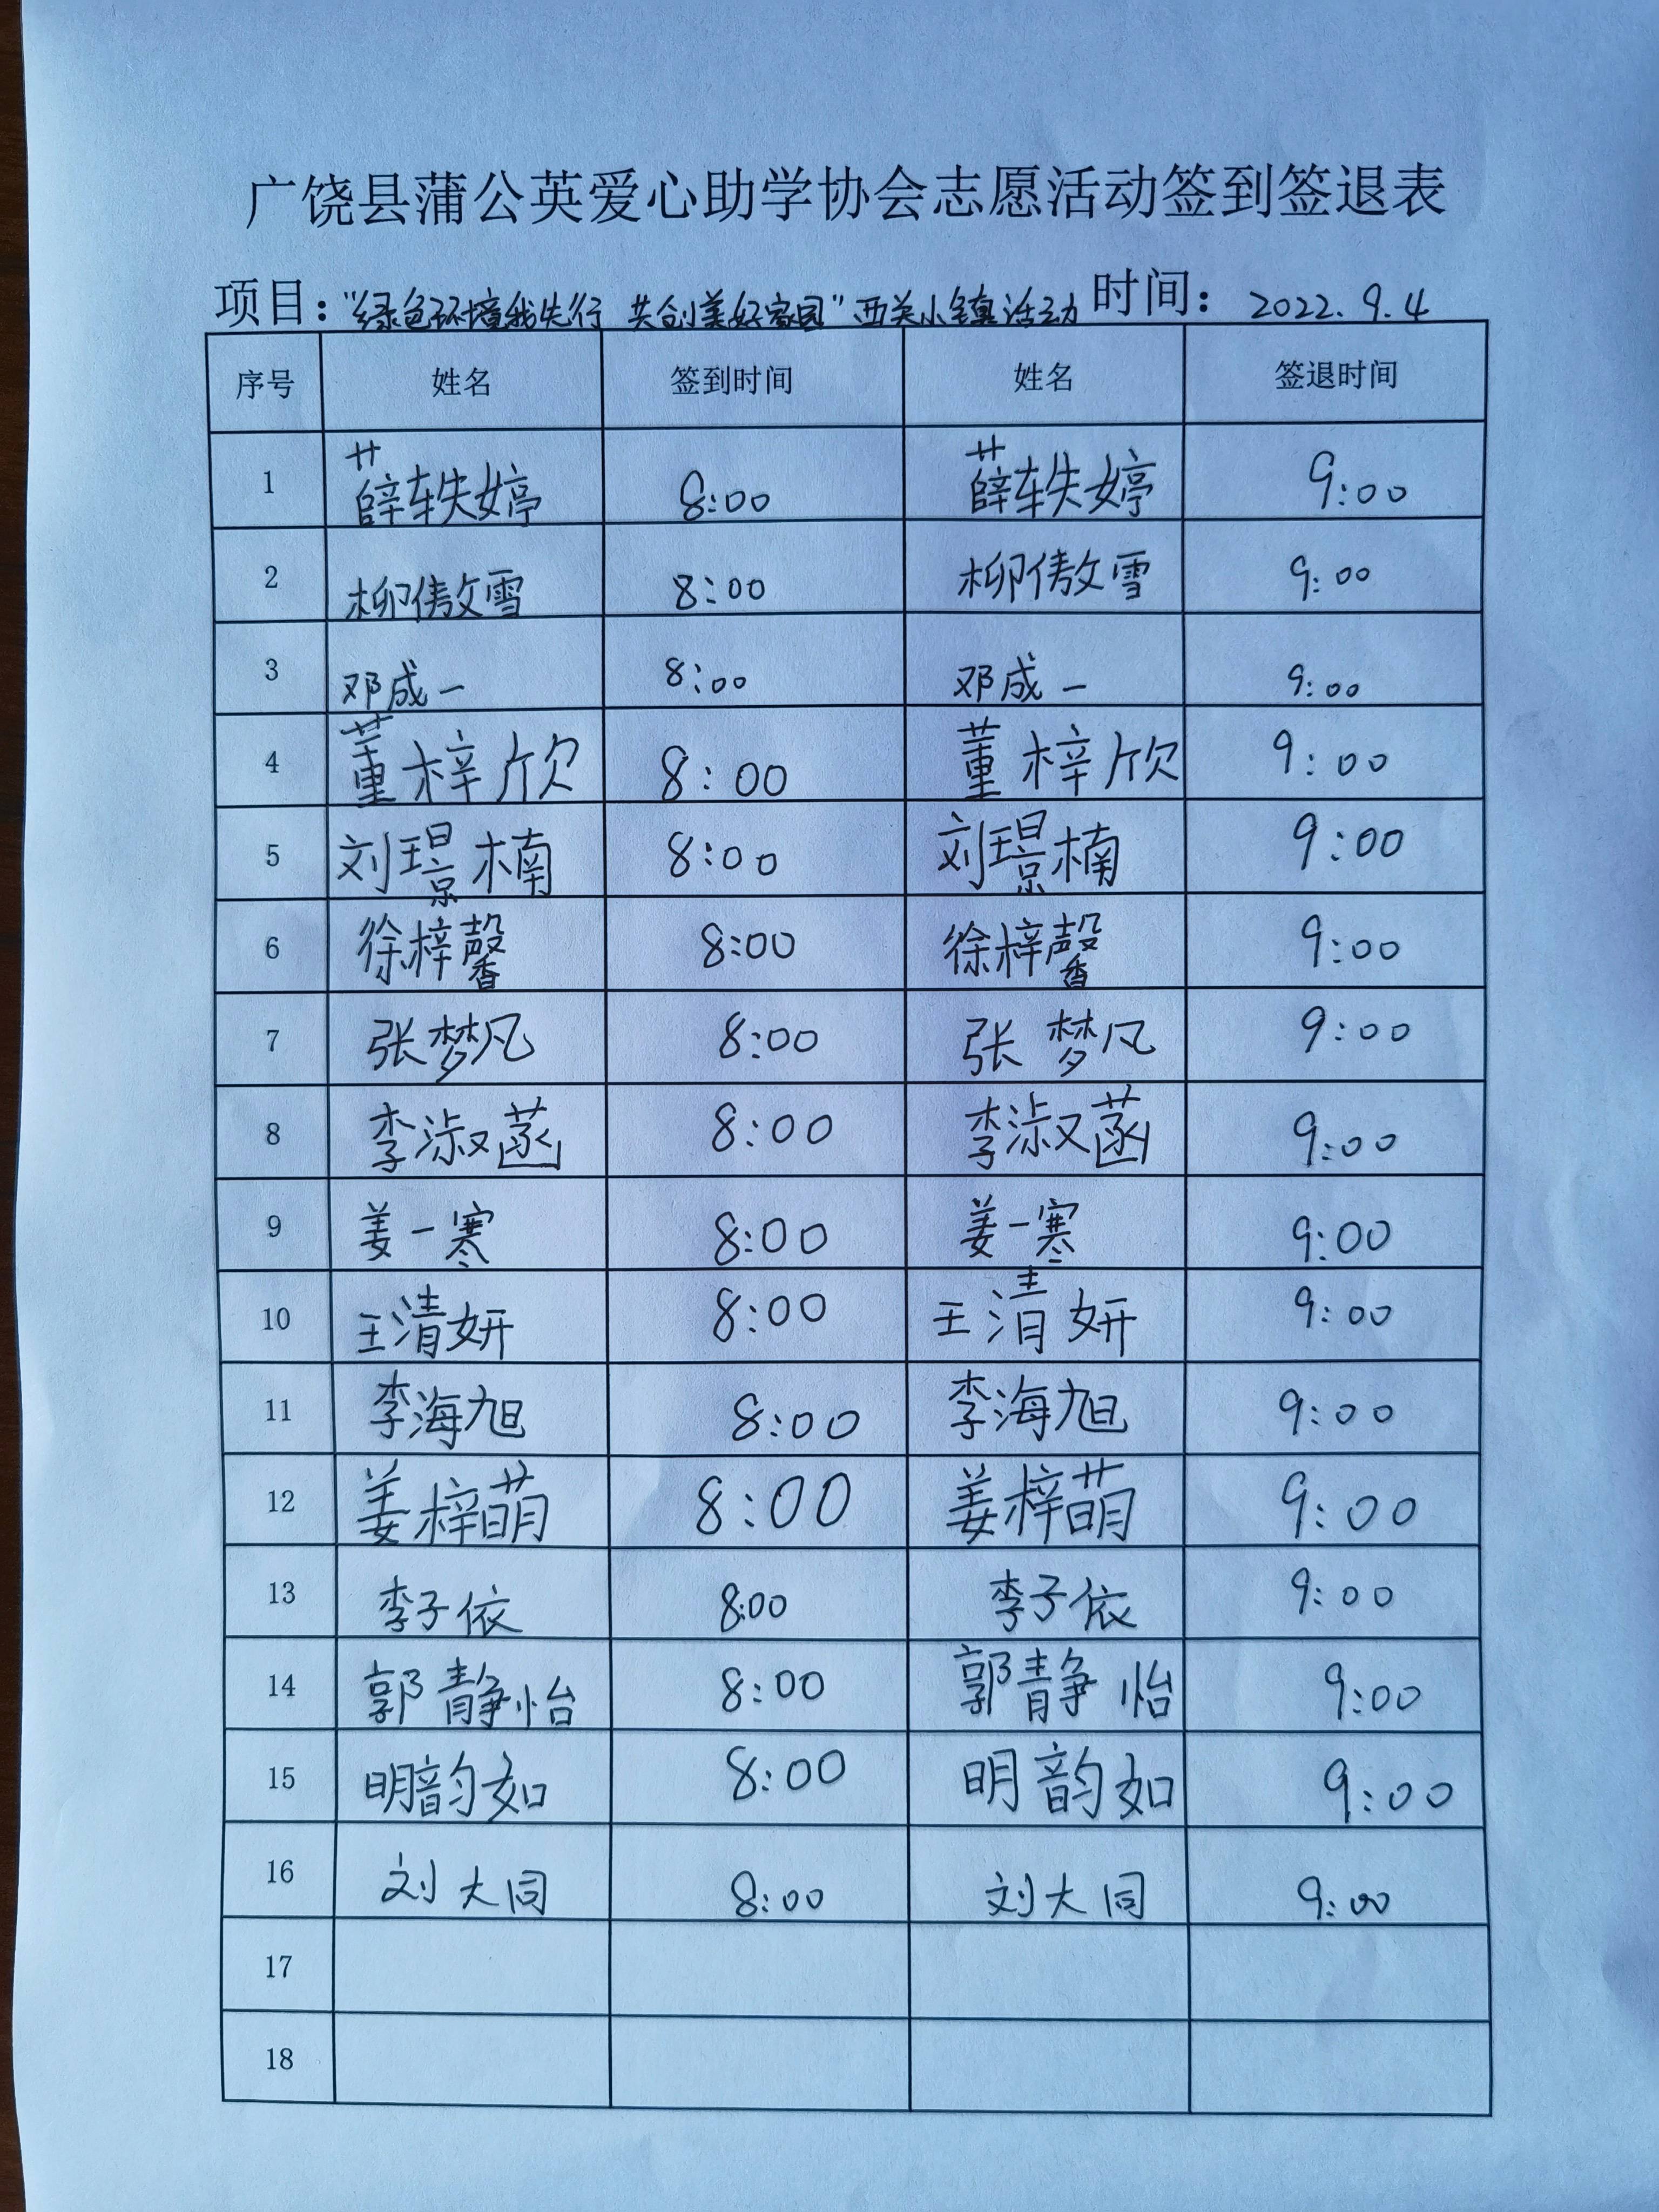 广饶县蒲公英爱心助学协会志愿活动签到签退表
项目："绿色环境我先行 共创美好家园"西关小镇活动 时间：2022.9.4
序号 姓名 签到时间 姓名 签退时间
1 薛轶婷 8:00 薛轶婷 9:00
2 柳傲雪 8:00 柳傲雪 9:00
3 邓成一 8:00 邓成一 9:00
4 董梓欣 8:00 董梓欣 9:00
5 刘璟楠 8:00 刘璟楠 9:00
6 徐梓馨 8:00 徐梓馨 9:00
7 张梦凡 8:00 张梦凡 9:00
8 李淑菡 8:00 李淑菡 9:00
9 姜一寒 8:00 姜一寒 9:00
10 王清妍 8:00 王清妍 9:00
11 李海旭 8:00 李海旭 9:00
12 姜梓萌 8:00 姜梓萌 9:00
13 李子依 8:00 李子依 9:00
14 郭静怡 8:00 郭静怡 9:00
15 明韵如 8:00 明韵如 9:00
16 刘大同 8:00 刘大同 9:00
17
18